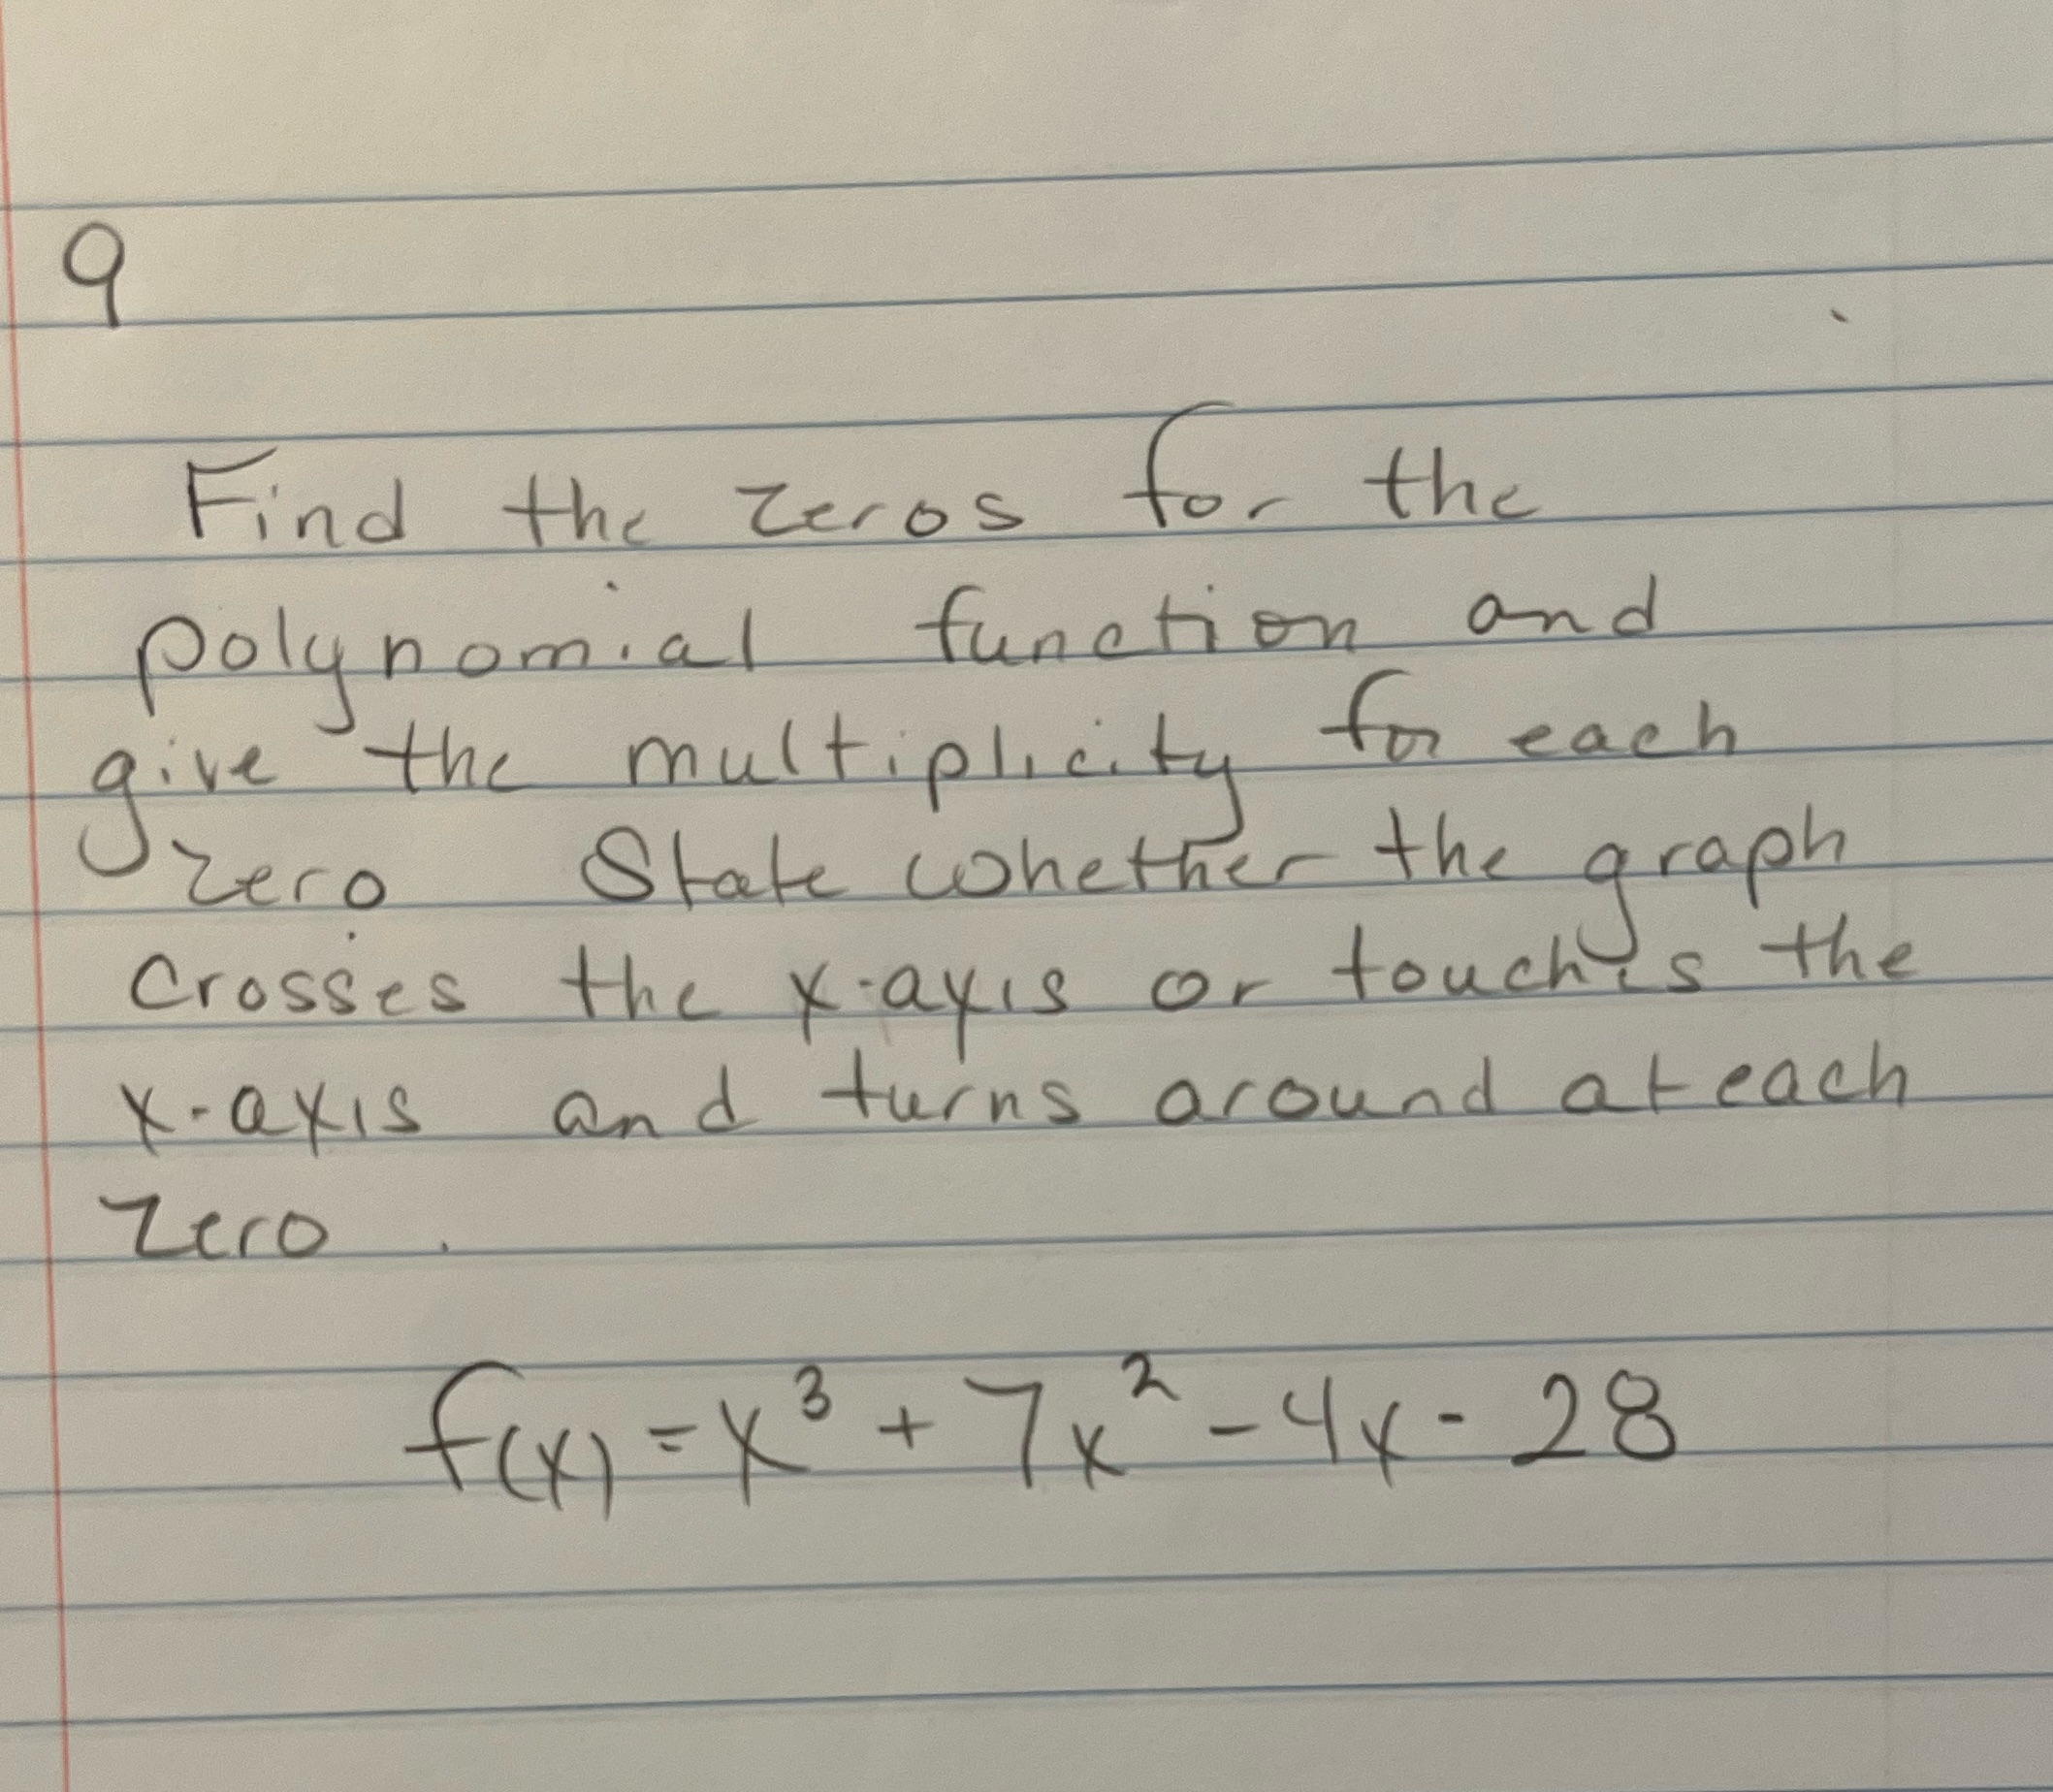 9
Find the zeros for the
polynomial function and
give the multiplicity for each
zero State whether the graph
crosses the x-axis or touches the
x-axis and turns around at each
zero.
f(x) = x³ + 7x² - 4x - 28